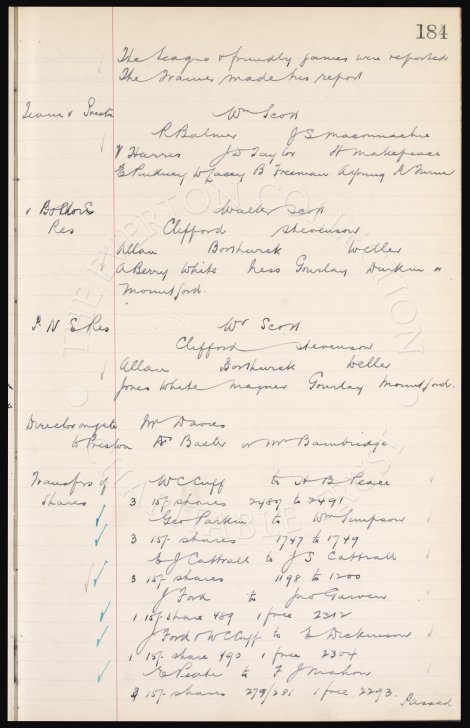 184
The League & friendly games were reported
The Trainer made his report
Team v Preston
Wm Scott
R Balmer J S Maconnachie
V Harris J D Taylor H Makepeace
E Pinkney W Lacey B Freeman A Young R Turner
v Bolton
Res
Walter Scott
Clifford Stevenson
Allan Borthwick Weller
A Berry White Gourlay Durkin or
Mountford.
P. N E Res
Wr Scott
Clifford Stevenson
Allan Borthwick Weller
Jones White Magner Gourlay Mountford.
Director
to Preston
Mr Davies
Baxter or Mr Bainbridge
Transfers of
Shares
W C Cuff to A B Peace
3 15/- shares 2489 to 2491
Geo Parkin to Wm Simpson
3 15/- shares 1747 to 1749
E J Cattrall to J S Cattrall
3 15/- shares 1198 to 1200
J Ford to Jno Garvin
1 15/- share 489 1 free 2312
J Ford & W C Cuff to E Dickinson
1 15/- share 492 1 free 2304
to F J
15/- shares 279/281 1 free 2293.
Passed
THE EVERTON COLLECTION
CHARITABLE TRUST